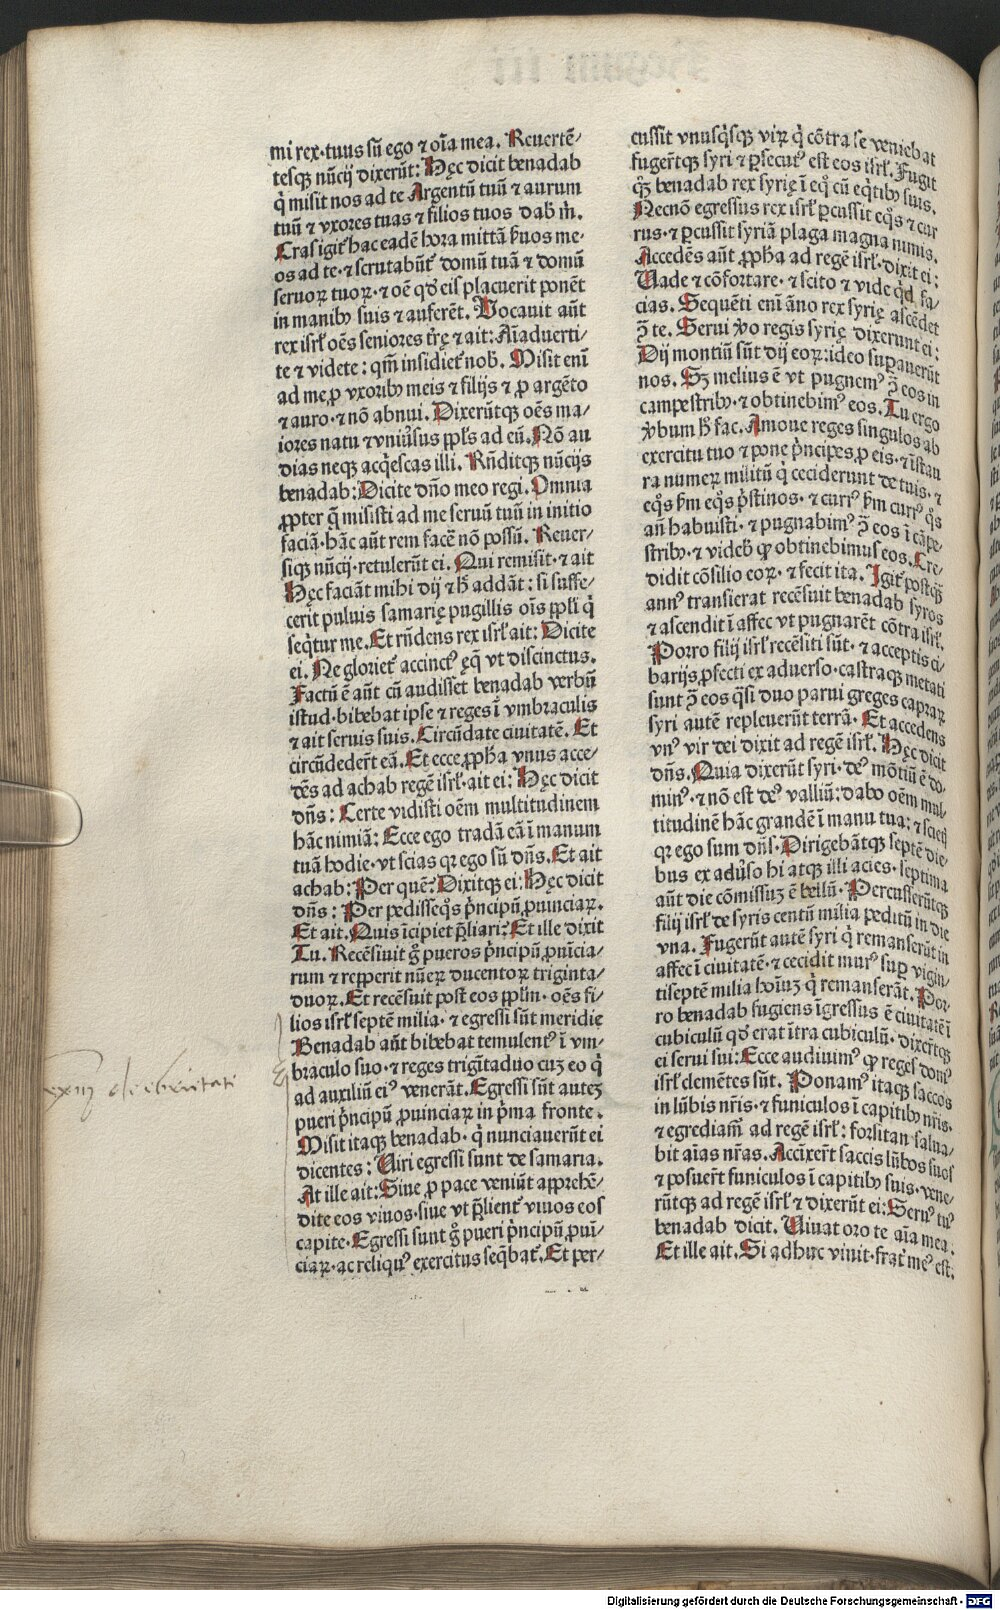 mi rex·tuus sū ego ⁊ oīa mea. Reuertē/
tesqꝫ nūcij dixerūt: Hęc dicit benadab
q̇ misit nos ad te Argentū tuū ⁊ aurum
tuū ⁊ vxores tuas ⁊ filios tuos dab̄ m̄.
Cras igit᷑ hac eadē hora mittā ẜuos me-
os ad te·⁊ scrutabūt᷑ domū tuā ⁊ domū
seruoꝝ tuoꝝ·⁊ oē qd̛ eis placuerit ponēt
in manibꝰ suis ⁊ auferēt. Vocauit aūt
rex isrl̄ oēs seniores tr̄rę ⁊ ait: Aīaduerti/
te ⁊ videte: qm̄ insidiet᷑ nob̄. Misit enī
ad me,ꝓ vxoribꝰ meis ⁊ filijs ⁊ ꝓ argēto
⁊ auro·⁊ nō abnui. Dixerūtqꝫ oēs ma/
iores natu ⁊ vniūsus ppl̄s ad eū. Nō au
dias neqꝫ acq̇escas illi. Rn̄ditqꝫ nūcijs
benadab: Dicite dn̄o meo regi. Omnia
ꝓpter q̄ misisti ad me seruū tuū in initio
faciā·hāc aūt rem facē nō possū. Reuer-
siqꝫ nūcij·retulerūt ei. Qui remisit·⁊ ait
Hęc faciāt mihi dij ⁊ h̄ addāt: si suffe/
cerit puluis samarię pugillis oīs ppl̄i q̇
seq̇tur me. Et rn̄dens rex isrl̄ ait: Dicite
ei. Ne gloriet᷑ accinctꝰ ęq̄ vt discinctus.
Factū ē aūt cū audisset benadab verbū
istud·bibebat ipse ⁊ reges ī vmbraculis
⁊ ait seruis suis. Circūdate ciuitatē. Et
circūdeder̄t eā. Et ecce ꝓph̄a vnus acce-
dēs ad achab regē isrl̄·ait ei: Hęc dicit
dn̄s: Certe vidisti oēm multitudinem
hāc nimiā: Ecce ego tradā eā ī manum
tuā hodie·vt scias qꝛ ego sū dn̄s. Et ait
achab: Per quē? Dixitqꝫ ei: Hęc dicit
dn̄s: Per pedisseq̊s p̄ncipū ꝓuinciaꝝ.
Et ait. Quis īcipiet p̄liari? Et ille dixit
Tu. Recēsiuit g̊ pueros p̄ncipū ꝓuīcia/
rum ⁊ repperit nūeꝝ ducentoꝝ triginta/
duoꝝ. Et recēsuit post eos ppl̄m·oēs fi/
lios isrl̄ septē milia·⁊ egressi sūt meridie
Benadab aūt bibebat temulentꝰ ī vm/
braculo suo·⁊ reges trigītaduo cuꝫ eo q̇
ad auxiliū eiꝰ venerāt. Egressi sūt auteꝫ
pueri p̄ncipū ꝓuinciaꝝ in p̄ma fronte.
Misit itaqꝫ benadab·q̇ nunciauerūt ei
dicentes: Viri egressi sunt de samaria.
At ille ait: Siue ꝓ pace veniūt apprehē-
dite eos viuos·siue vt p̄lient᷑ viuos eos
capite·Egressi sunt g̊ pueri p̄ncipū ꝓuī/
ciaꝝ·ac reliquꝰ exercitus seq̄bat᷑. Et per-
cussit vnusq̇sqꝫ viꝝ q̇ cōtra se veniebat
fuger̄tqꝫ syri ⁊ ꝑsecutꝰ est eos isrl̄. Fugit
q̊qꝫ benadab rex syrię ī eq̊ cū eq̇tibꝰ suis.
Necnō egressus rex isrl̄ ꝑcussit eq̊s ⁊ cur
rus·⁊ ꝑcussit syriā plaga magna nimis.
Accedēs aūt ꝓph̄a ad regē isrl̄·dixit ei:
Vade ⁊ cōfortare·⁊ scito ⁊ vide qd̛ fa-
cias. Sequēti enī āno rex syrię ascēdet
ꝯ̄ te. Serui ꝟo regis syrię dixerunt ei:
Dij montiū sūt dij eoꝝ: ideo suꝑauerūt
nos. Sꝫ melius ē vt pugnemꝰ ꝯ̄ eos in
campestribꝰ·⁊ obtinebimꝰ eos. Tu ergo
ꝟbum h̄ fac. Amoue reges singulos ab
exercitu tuo ⁊ pone p̄ncipes,ꝓ eis·⁊ īstau
ra numeꝝ militū q̇ ceciderunt de tuis·⁊
eq̊s ẜm eq̊s p̄stinos·⁊ currꝰ ẜm currꝰ q̊s
an̄ habuisti·⁊ pugnabimꝰ ꝯ̄ eos ī cāpe-
stribꝰ·⁊ videb̄ ꝙ obtinebimus eos. Cre-
didit cōsilio eoꝝ·⁊ fecit ita. Igit᷑ postq̄ꝫ
annꝰ transierat recēsuit benadab syros
⁊ ascendit ī affec vt pugnarēt cōtra isrl̄.
Porro filij isrl̄ recēsiti sūt·⁊ acceptis ci-
barijs,ꝓfecti ex aduerso·castraqꝫ metati
sunt ꝯ̄ eos q̄si duo parui greges capraꝝ
syri autē repleuerūt terrā. Et accedens
vnꝰ vir dei dixit ad regē isrl̄. Hęc dicit
dn̄s. Quia dixerūt syri·deꝰ mōtiū ē do-
minꝰ·⁊ nō est deꝰ valliū: dabo oēm mul
titudinē hāc grandē ī manu tua: ⁊ scietꝭ
qꝛ ego sum dn̄s·Dirigebātqꝫ septē die-
bus ex adūso hi atqꝫ illi acies·septima
aūt die cōmissuꝫ ē bellū. Percusserūtqꝫ
filij isrl̄ de syris centū milia peditū in die
vna. Fugerūt autē syri q̇ remanserūt in
affec ī ciuitatē·⁊ cecidit murꝰ suꝑ vigin/
tiseptē milia hoīuꝫ q̇ remanserāt. Por-
ro benadab fugiens īgressus ē ciuitatē ī
cubiculū qd̛ erat ītra cubiculū·dixer̄tqꝫ
ei serui sui: Ecce audiuimꝰ ꝙ regesꝰ domꝰ
isrl̄ clemētes sūt. Ponamꝰ itaqꝫ saccos
in lūbis nr̄is·⁊ funiculos ī capitibꝰ nr̄is·
⁊ egrediam᷑ ad regē isrl̄: forsitan salua/
bit aīas nr̄as. Accīxer̄t saccis lūbos suos
⁊ posuer̄t funiculos ī capitibꝰ suis·vene-
rūtqꝫ ad regē isrl̄ ⁊ dixerūt ei: Seruꝰ tuꝰ
benadab dicit. Viuat oro te aīa mea.
Et ille ait. Si adhuc viuit·frat᷑ meꝰ est.
de ebrietati
Digitalisierung gefördert durch die Deutsche Forschungsgemeinschaft - DFG